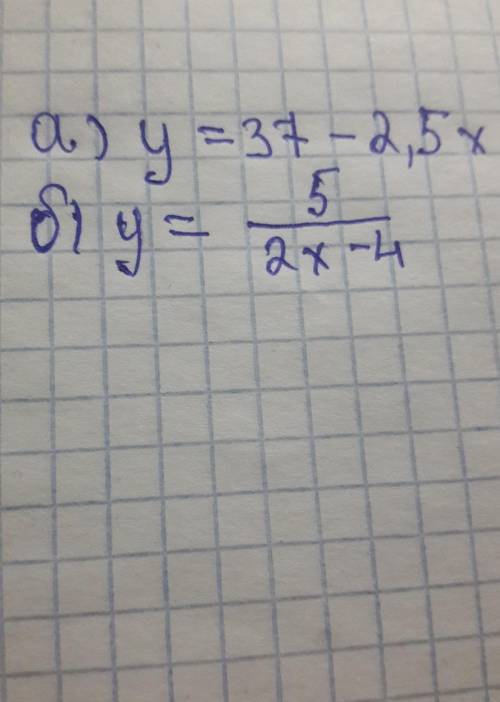 а) y = 37 - 2,5x
б) y = 5/(2x-4)